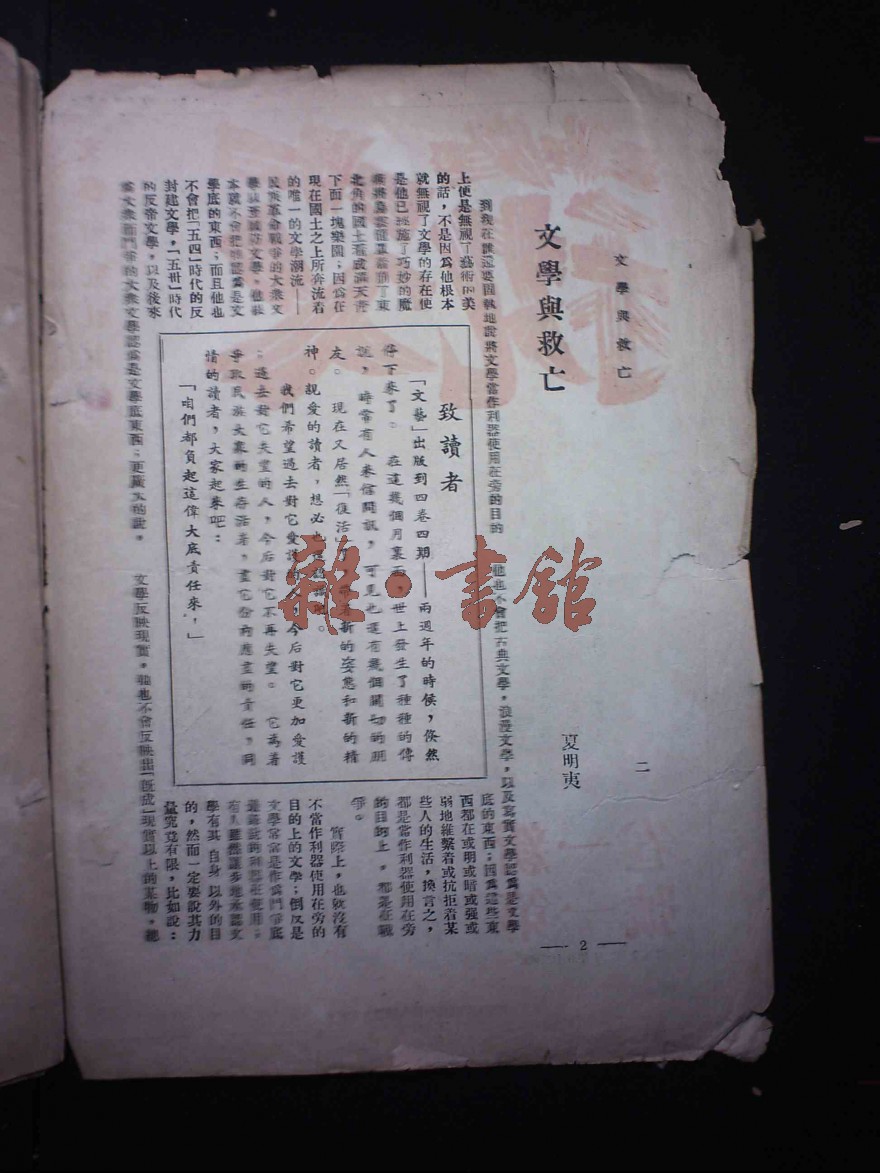 文學與救亡
二
— 2 —
文學與救亡
夏明夷
到現在誰還要固執地說將文學當作利器使用在旁的目的
上便是無視了藝術的美
的話，不是因爲他根本
就無視了文學的存在便
是他已經施了巧妙的魔
北角的國土看成滿天青
下面一塊樂園；因爲在
現在國土之上所奔流着
的唯一的文學潮流——
民族革命戰爭的大衆文
本就不會把牠認爲是文
學底的東西；而且他也
不會把「五四」時代的反
封建文學，「五卅」時代
的反帝文學，以及後來
大衆文學認爲是文學底東西；更廣大的說，
他也不會把古典文學，浪漫文學，以及寫實文學認爲是文學
底的東西；因爲這些東
西都在或明或暗或强或
弱地維繫着或抗拒着某
些人的生活，換言之，
都是當作利器使用在旁
的目的上，都是在戰
爭。
實際上，也就沒有
不當作利器使用在旁的
目的上的文學；倒反是
文學常常是作爲鬥爭底
最銳利的利器在使用；
有人雖然讓步地承認文
學有其自身以外的目
的，然而一定要說其力
量究竟有限，比如說：
文學反映現實，牠也不會反映出「既成」現實以上的某物，
致讀者
「文藝」出版到四卷四期——兩週年的時候，倏然
停下來了。在這幾個月裏面，世上發生了種種的傳
說，時常有人來信問訊，可見也還有幾個關切的朋
友。現在又居然「復活」了，帶着新的姿態和新的精
神。親愛的讀者，想必
我們希望過去對它愛護的人，今后對它更加愛護
；過去對它失望的人，今后對它不再失望。它爲着
爭取民族大衆的生存活着，盡它份內應盡的責任，同
情的讀者，大家起來吧：
「咱們都負起這偉大底責任來，」
雜·書館